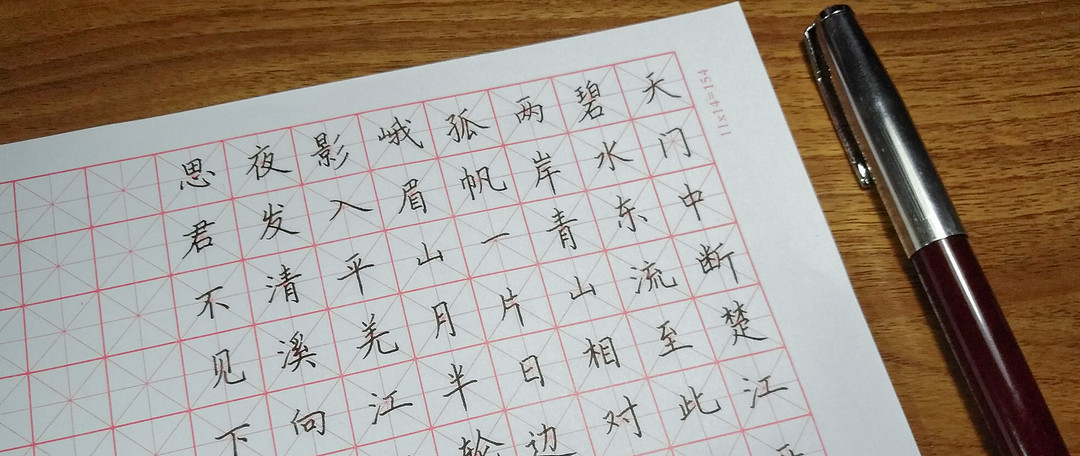 天门中断楚江
碧水东流至此
两岸青山相对
孤帆一片日边
峨眉山月半轮
影入平羌江
夜发清溪向
思君不见下
11x14=154